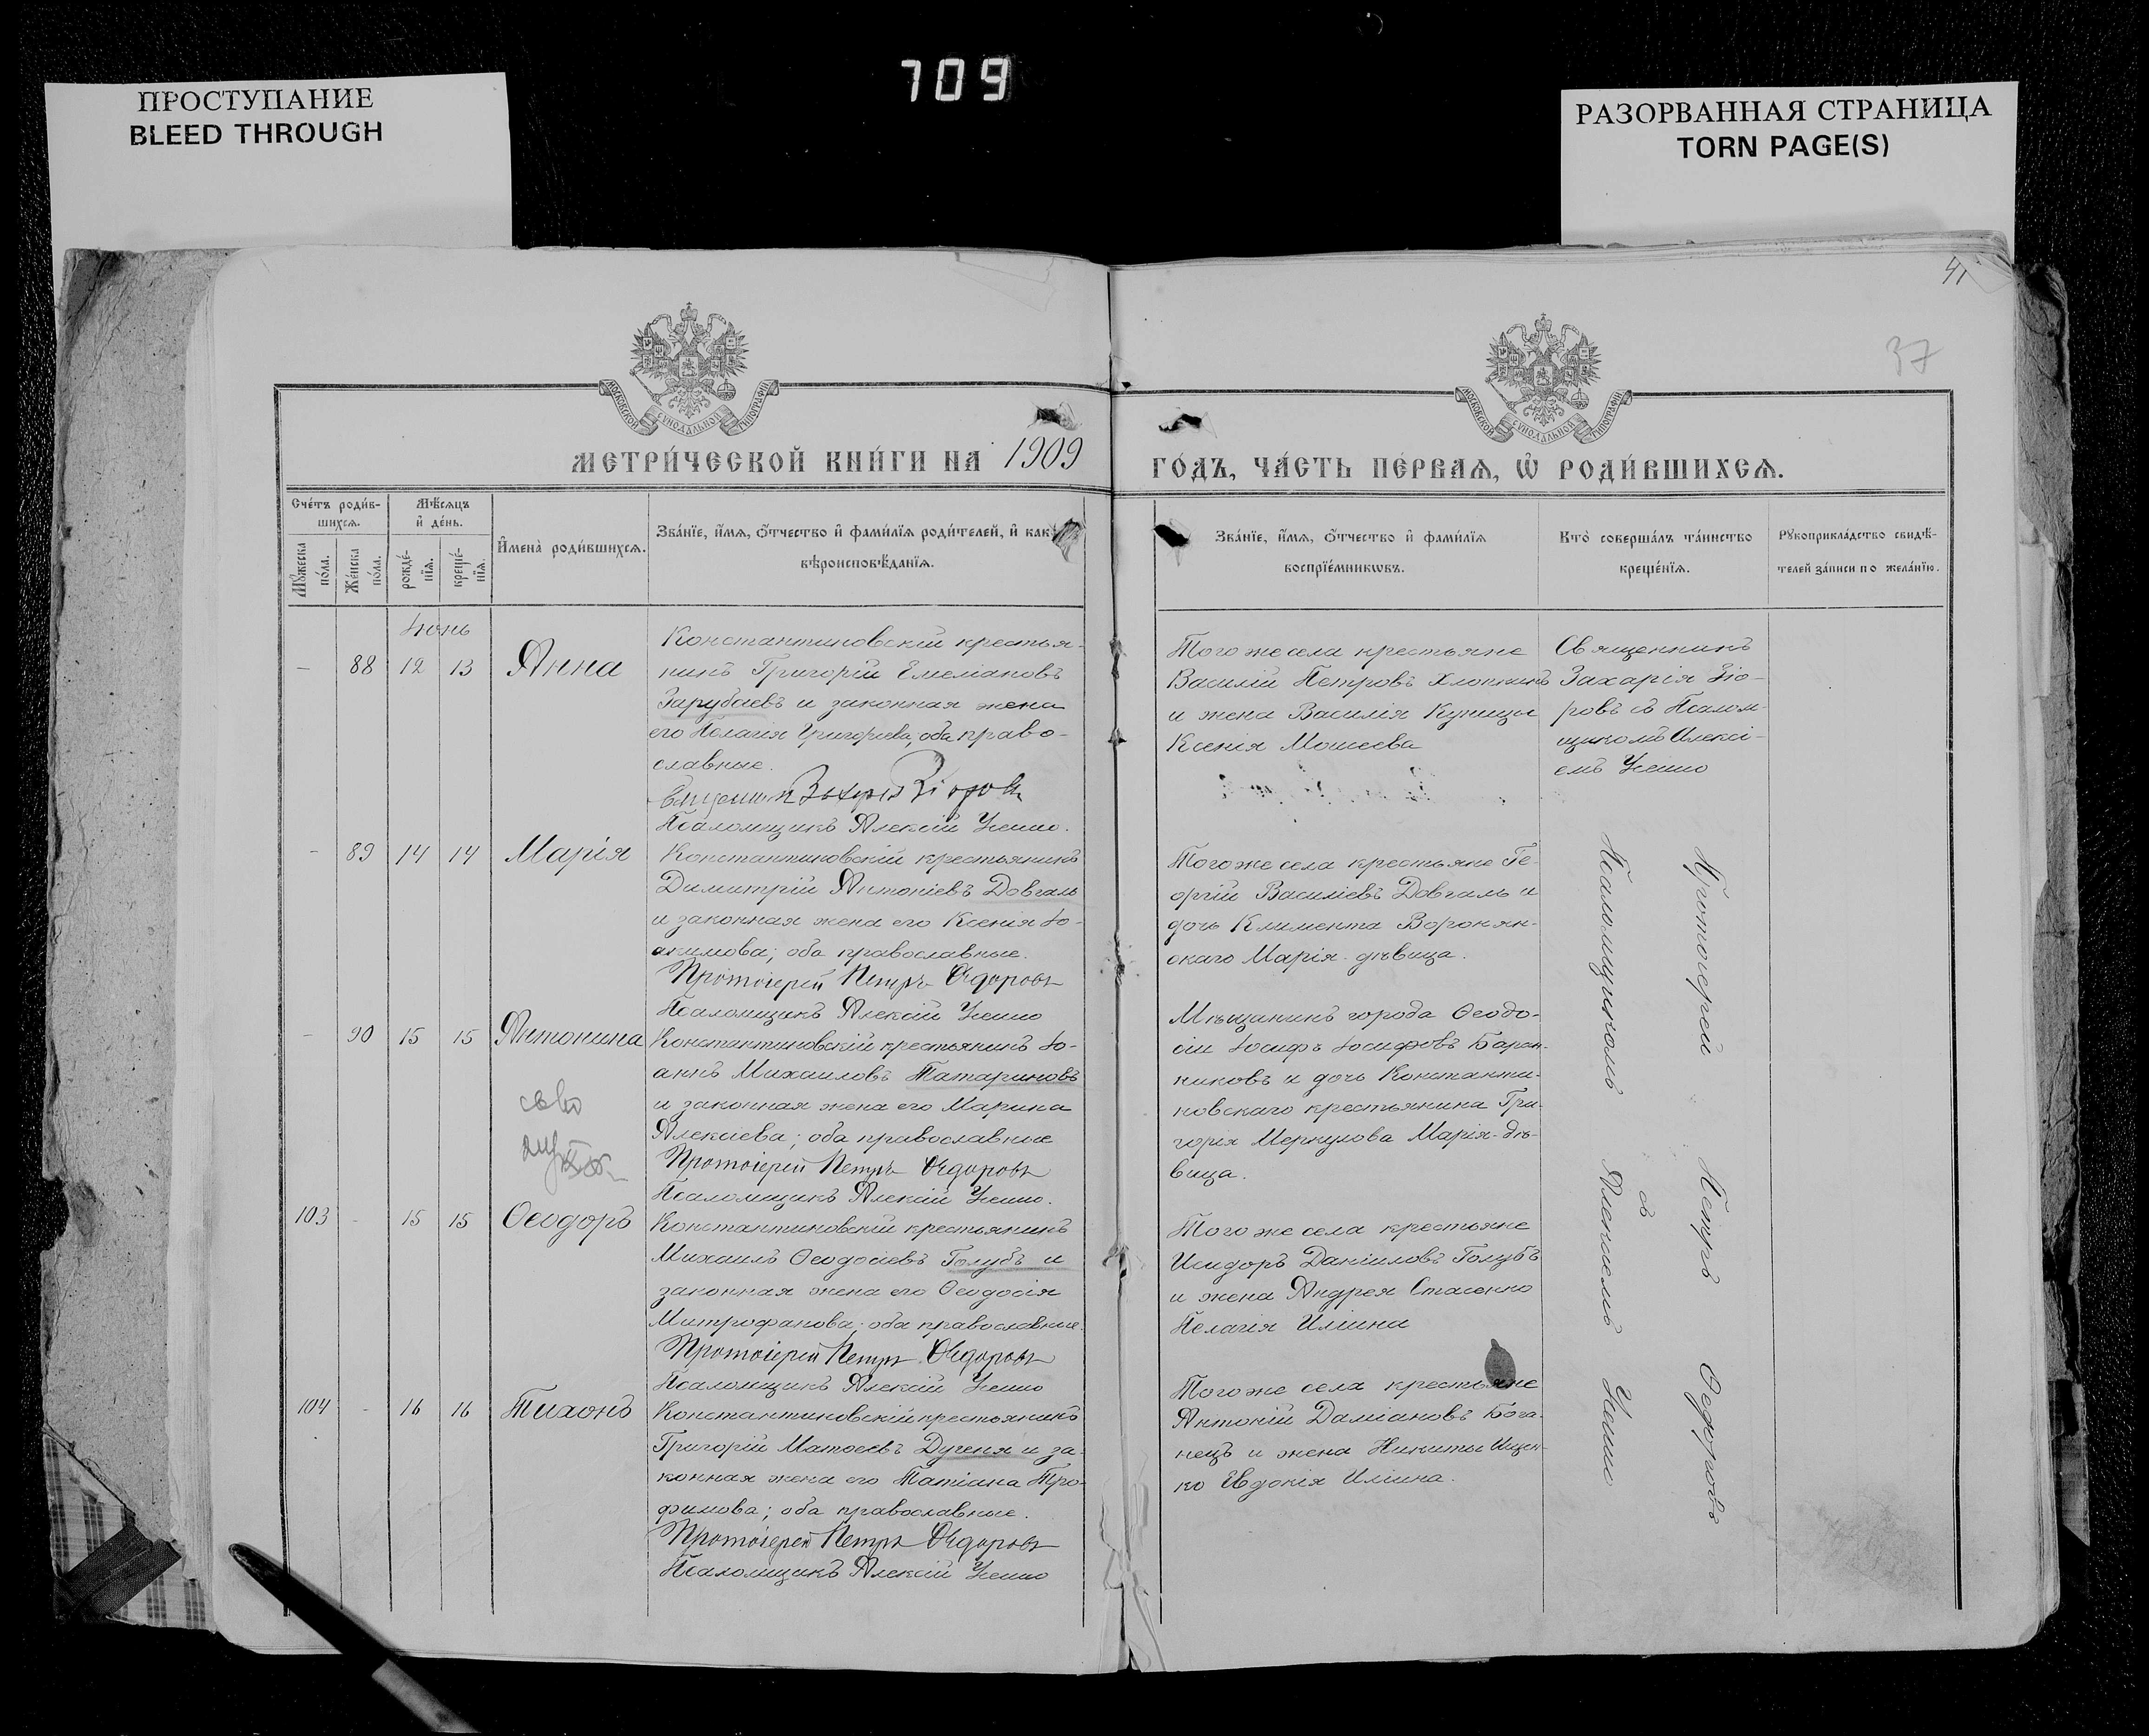 709
ПРОСТУПАНИЕ
BLEED THROUGH
РАЗОРВАННАЯ СТРАНИЦА
TORN PAGE(S)
41
37
МОСКОВСКОЙ СѴНОДАЛЬНОЙ ТИПОГРАФІИ
МОСКОВСКОЙ СѴНОДАЛЬНОЙ ТИПОГРАФІИ
МЕТРИ́ЧЕСКОЙ КНИ́ГИ НА 1909
ГО́ДЪ, ЧА́СТЬ ПЕ́РВАѦ, Ѡ҆ РОДИ́ВШИХСѦ.
Сче́тъ роди́в-
шихсѧ.
Мꙋ́жеска по́ла.
Же́нска по́ла.
Мѣ́сѧцъ
и҆ де́нь.
рожде́-
нїѧ.
креще́-
нїѧ.
И҆мена̀ роди́вшихсѧ.
Зва́нїе, и҆́мѧ, ѻ҆́тчество и҆ фами́лїѧ роди́телей, и҆ как
вѣроисповѣ́данїѧ.
Зва́нїе, и҆́мѧ, ѻ҆́тчество и҆ фами́лїѧ
воспрїе́мникѡвъ.
Кто̀ соверша́лъ та́инство
креще́нїѧ.
Рꙋкоприкла́дство свидѣ́-
телей за́писи по жела́нїю.
Іюнь
— 88 12 13 Анна
Константиновскій крестья-
нинъ Григорій Емеліановъ
Зарубаевъ и законная жена
его Пелагія Григорьева, оба право-
славные.
Священникъ Захарія Зіоровъ
Псаломщикъ Алексій Уемно.
Того же села крестьяне
Василій Петровъ Хлопкинъ
и жена Василія Куницы
Ксенія Мошеева
Священникъ
Захарія Зіо-
ровъ съ Псалом-
щикомъ Алексі-
емъ
- 89 14 14 Марія
Константиновскій крестьянинъ
Димитрій Антоніевъ Довгаль
и законная жена его Ксенія Іо-
акимова; оба православные.
Протоіерей Петръ Ѳедоровъ
Псаломщикъ Алексій
Того же села крестьяне Ге-
оргій Василіевъ Довгаль и
дочь Климента Воронян-
скаго Марія - дѣвица.
- 90 15 15 Антонина
Константиновскій крестьянинъ Іо-
аннъ Михаиловъ Татариновъ
и законная жена его Марина
Алексіева; оба православные
Протоіерей Петръ Ѳедоровъ
Псаломщикъ Алексій
Мѣщанинъ города Ѳеодо-
сіи Іосифъ Іосифовъ Баран-
никовъ и дочь Константи-
новскаго крестьянина Гри-
горія Меркулова Марія - дѣ-
вица.
103 - 15 15 Ѳеодоръ
Константиновскій крестьянинъ
Михаилъ Ѳеодосіевъ Голубъ и
законная жена его Ѳеодосія
Митрофанова; оба православные.
Протоіерей Петръ Ѳедоровъ
Псаломщикъ Алексій
Того же села крестьяне
Исидоръ Даніиловъ Голубъ
и жена Андрея Стасенко
Пелагія Иліина
104 - 16 16 Тихонъ
Константиновскій крестьянинъ
Григорій Матѳеевъ Дугеня и за-
конная жена его Татіана Тро-
фимова; оба православные.
Протоіерей Петръ Ѳедоровъ
Псаломщикъ Алексій
Того же села крестьяне
Антоній Даміановъ Бога-
нецъ и жена Никиты Ищен-
ко Евдокія Иліина.
Протоіерей Петръ Ѳедоровъ
съ
Псаломщикомъ Алексіемъ